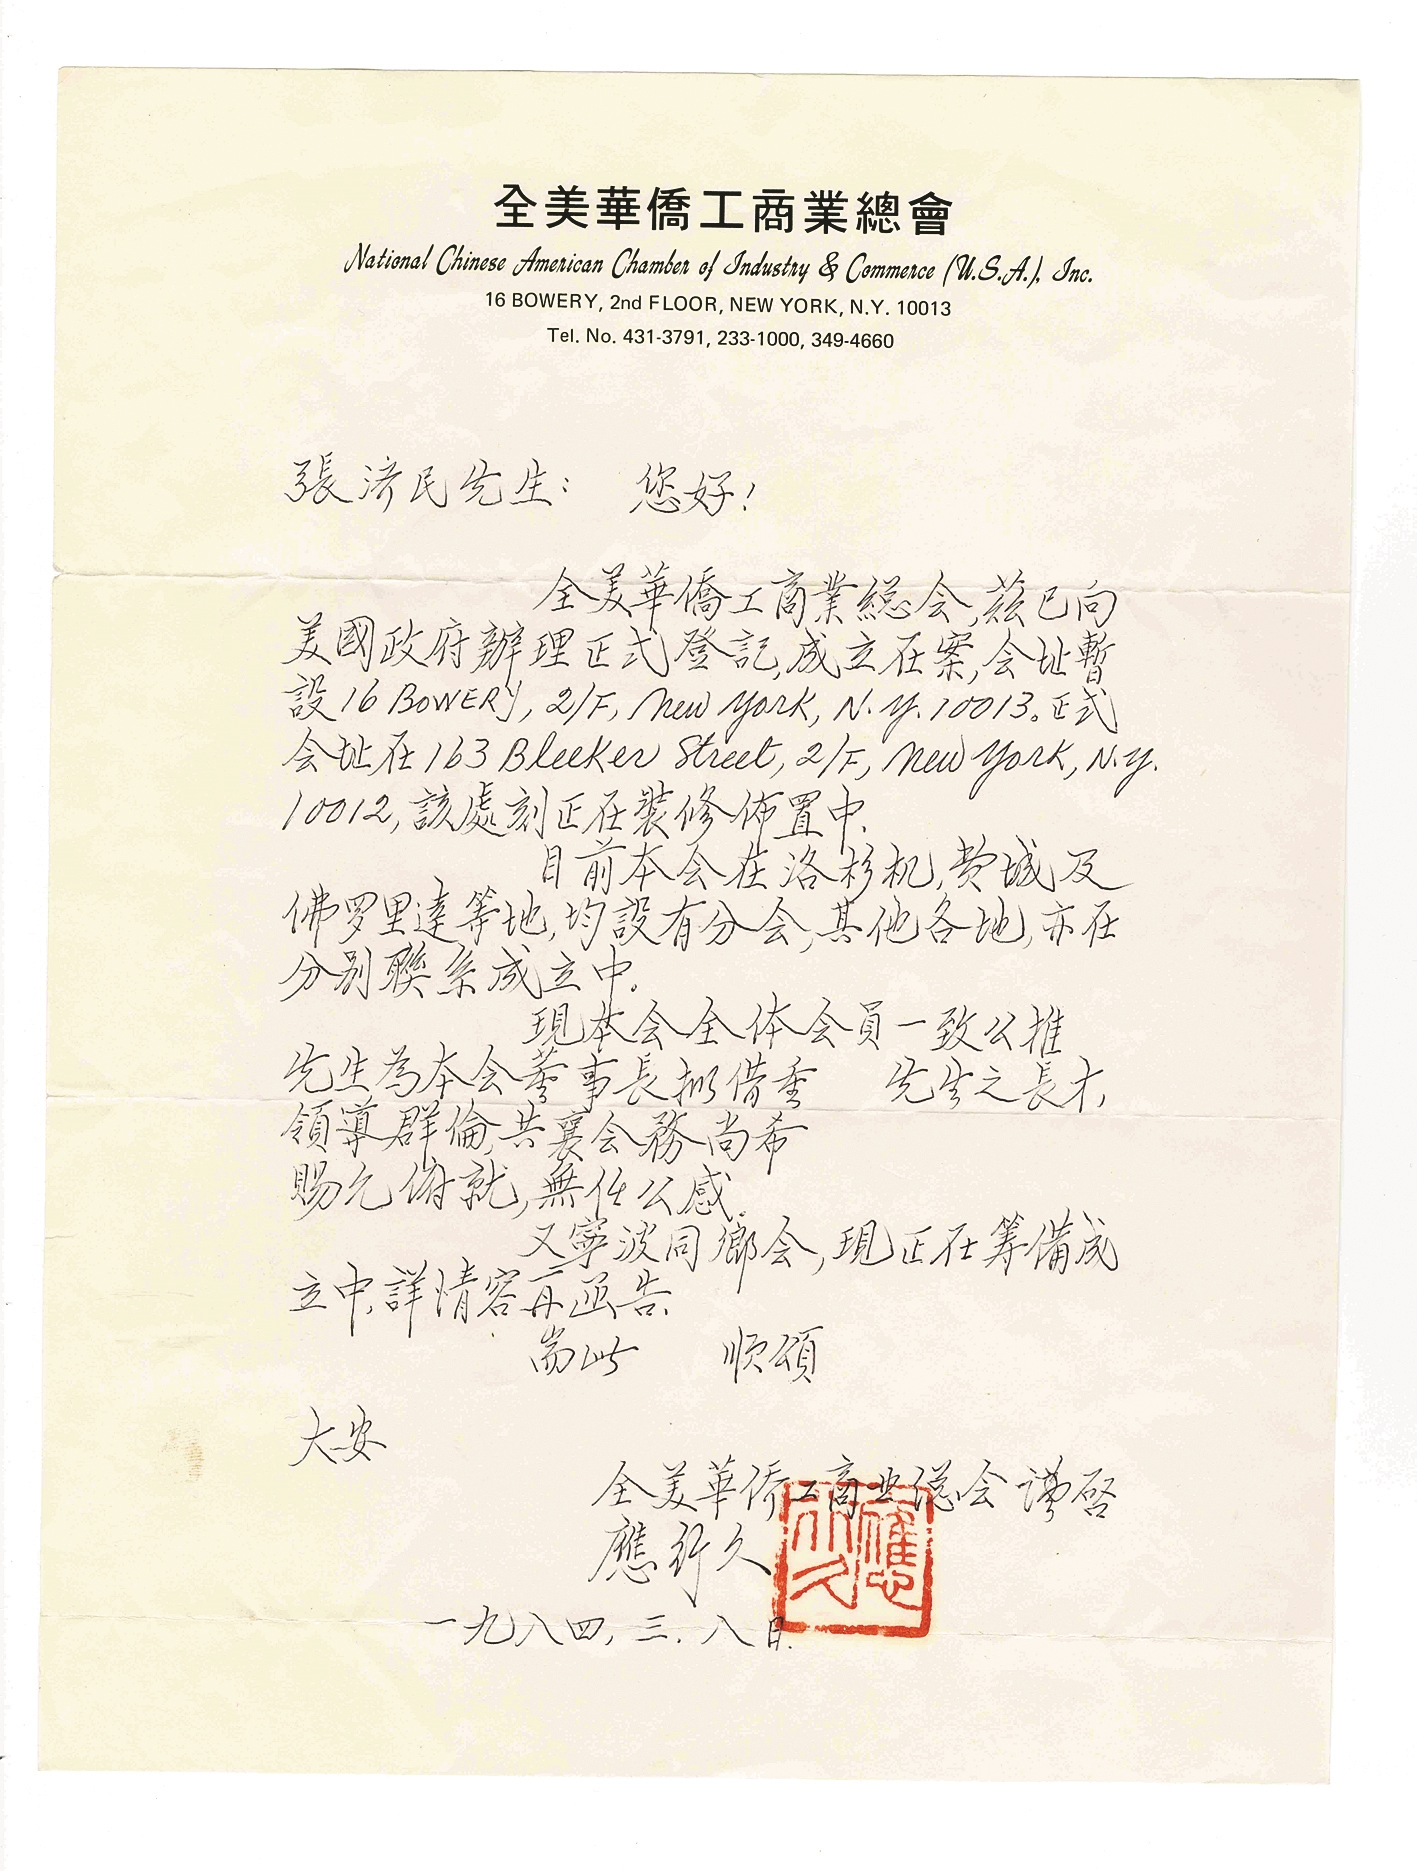 全美華僑工商業總會
National Chinese American Chamber of Industry & Commerce (U.S.A.), Inc.
16 BOWERY, 2nd FLOOR, NEW YORK, N.Y. 10013
Tel. No. 431-3791, 233-1000, 349-4660
張济民先生: 您好!
全美華僑工商業総会,茲已向
美國政府辦理正式登記,成立在案,会址暫
設16 BOWERY, 2/F, New York, N.Y. 10013。正式
会址在163 Bleeker Street, 2/F, New York, N.Y.
10012,該處刻正在裝修佈置中.
目前本会在洛杉机,费城及
佛罗里達等地,均設有分会,其他各地,亦在
分别聯系成立中.
現本会全体会員一致公推
先生為本会董事長拟借重 先生之長才,
領導群倫,共襄会務尚希
賜允俯就,無任公感.
又寧波同鄉会,現正在筹備成
立中.詳情容再函告.
耑此 順頌
大安
全美華侨工商业総会謹啓
應行久
應行久
一九八四,三.八日.